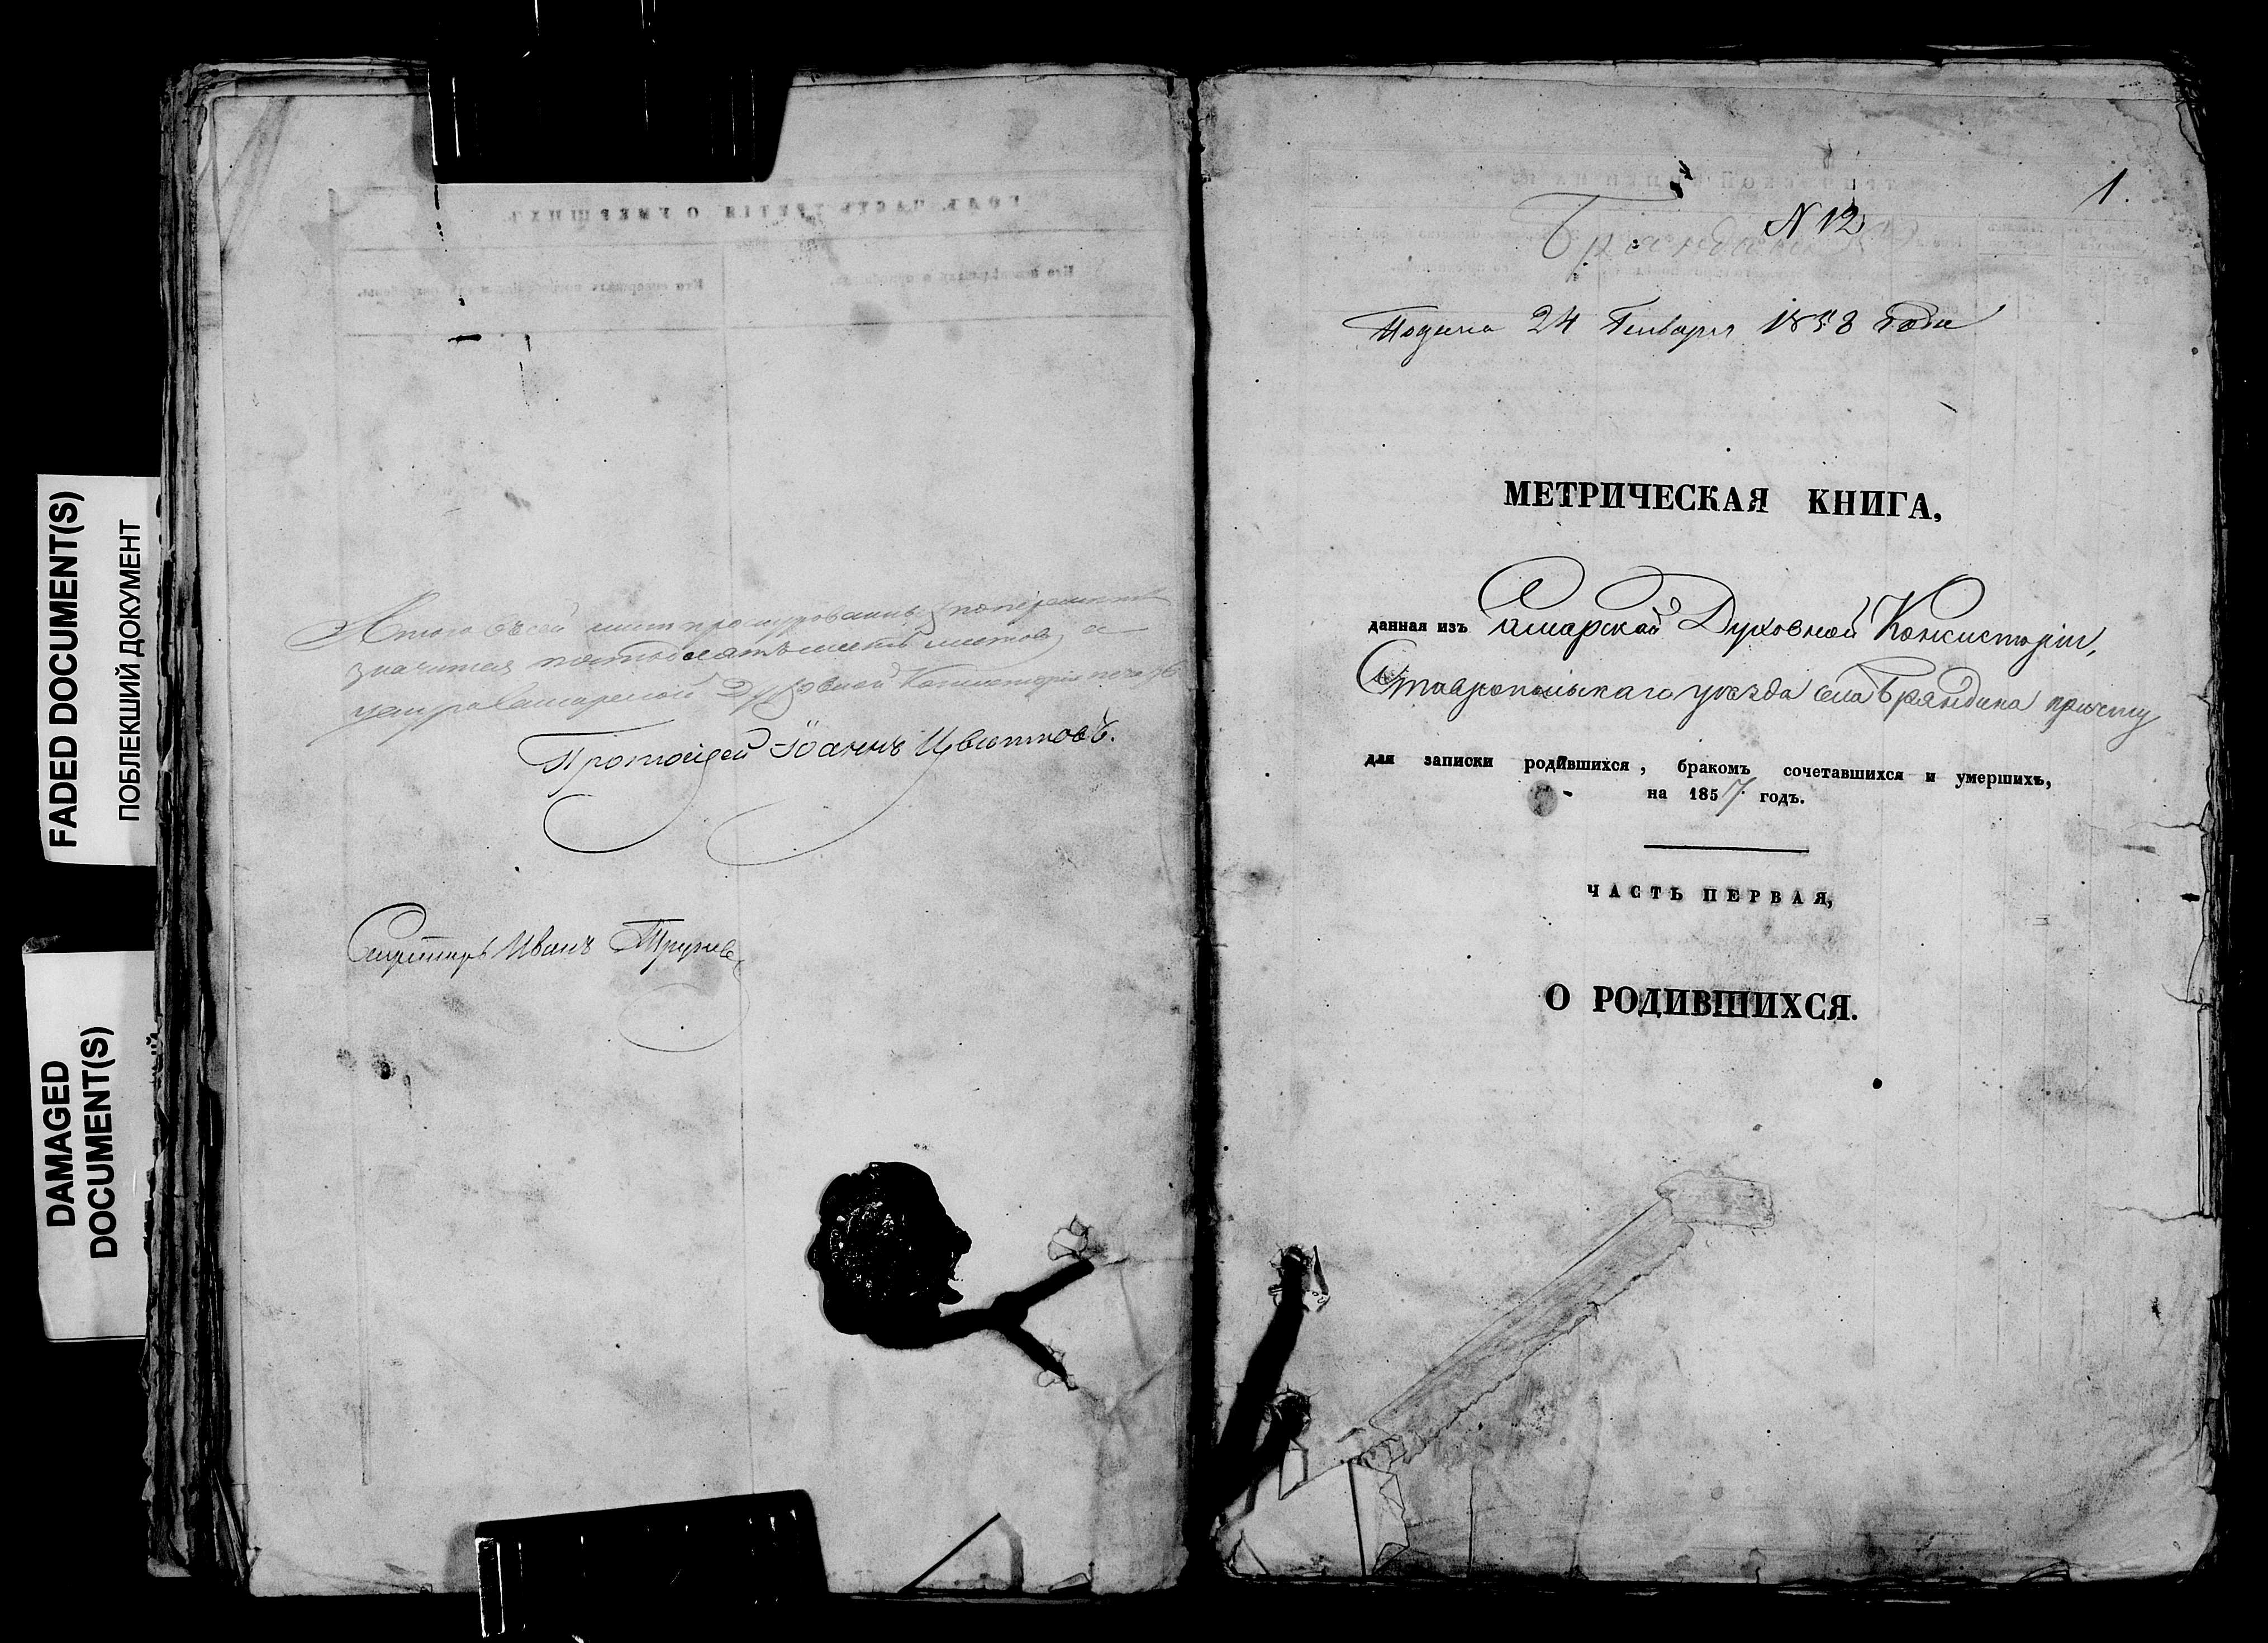 FADED DOCUMENT(S)
ПОБЛЕКШИЙ ДОКУМЕНТ
DAMAGED
DOCUMENT(S)
ГОДЪ ЧАСТЬ ТРЕТІЯ О УМЕРШИХЪ.
Итого въ сей
значится пятьдесятъ шесть листовъ, а
Самарской Духовной Консисторіи
Протоіерей Іоаннъ Цвѣтковъ.
Секретарь Иванъ
1.
N 12
Бряндино
Подана 24 Генваря 1858 года
МЕТРИЧЕСКАЯ КНИГА,
данная изъ Самарской Духовной Консисторіи,
Ставропольскаго уѣзда села Бряндина причту
для записки родившихся, бракомъ сочетавшихся и умершихъ,
на 1857 годъ.
ЧАСТЬ ПЕРВАЯ,
О РОДИВШИХСЯ.